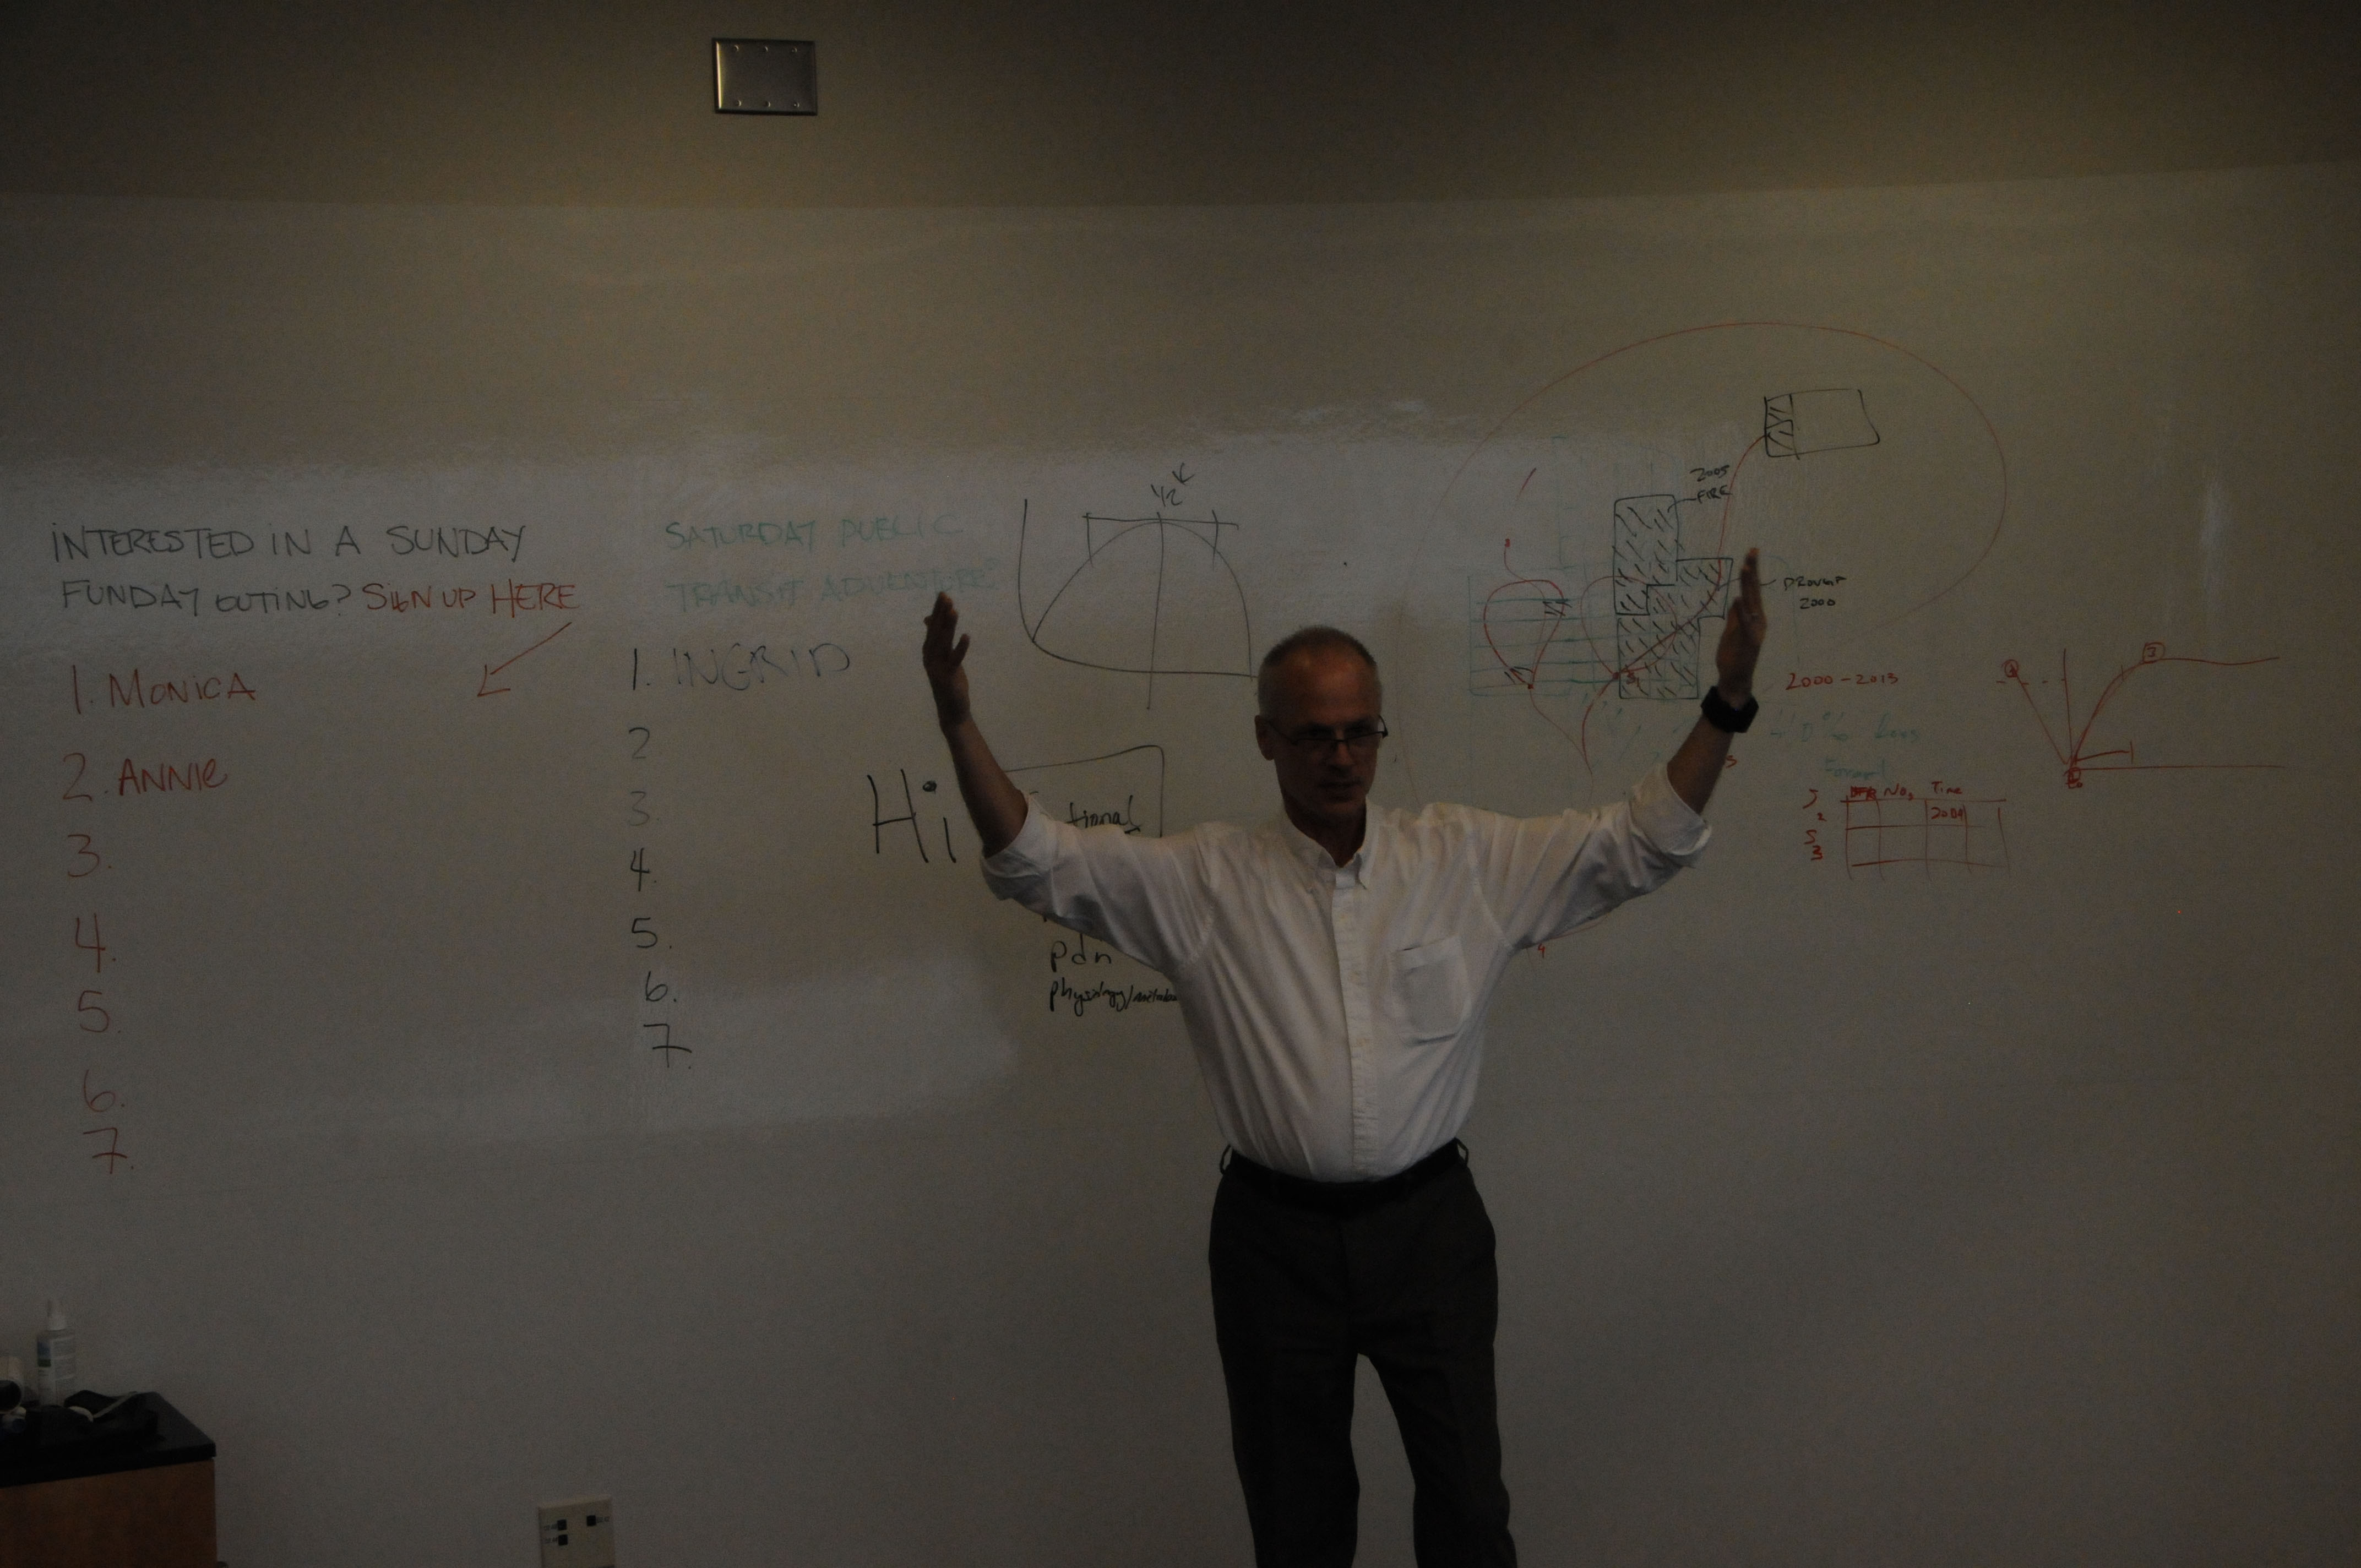 INTERESTED IN A SUNDAY
FUNDAY OUTING? SIGN UP HERE
1. MONICA
2. ANNIE
3.
4.
5.
6.
7.
SATURDAY PUBLIC
TRANSIT ADVENTURE?
1. INGRID
2
3
4.
5.
6.
7.
1/2 K
Hi
tional
pdn
physiology/
2005
FIRE
DROUGHT
2000
2000-2013
No. Time
2004
4